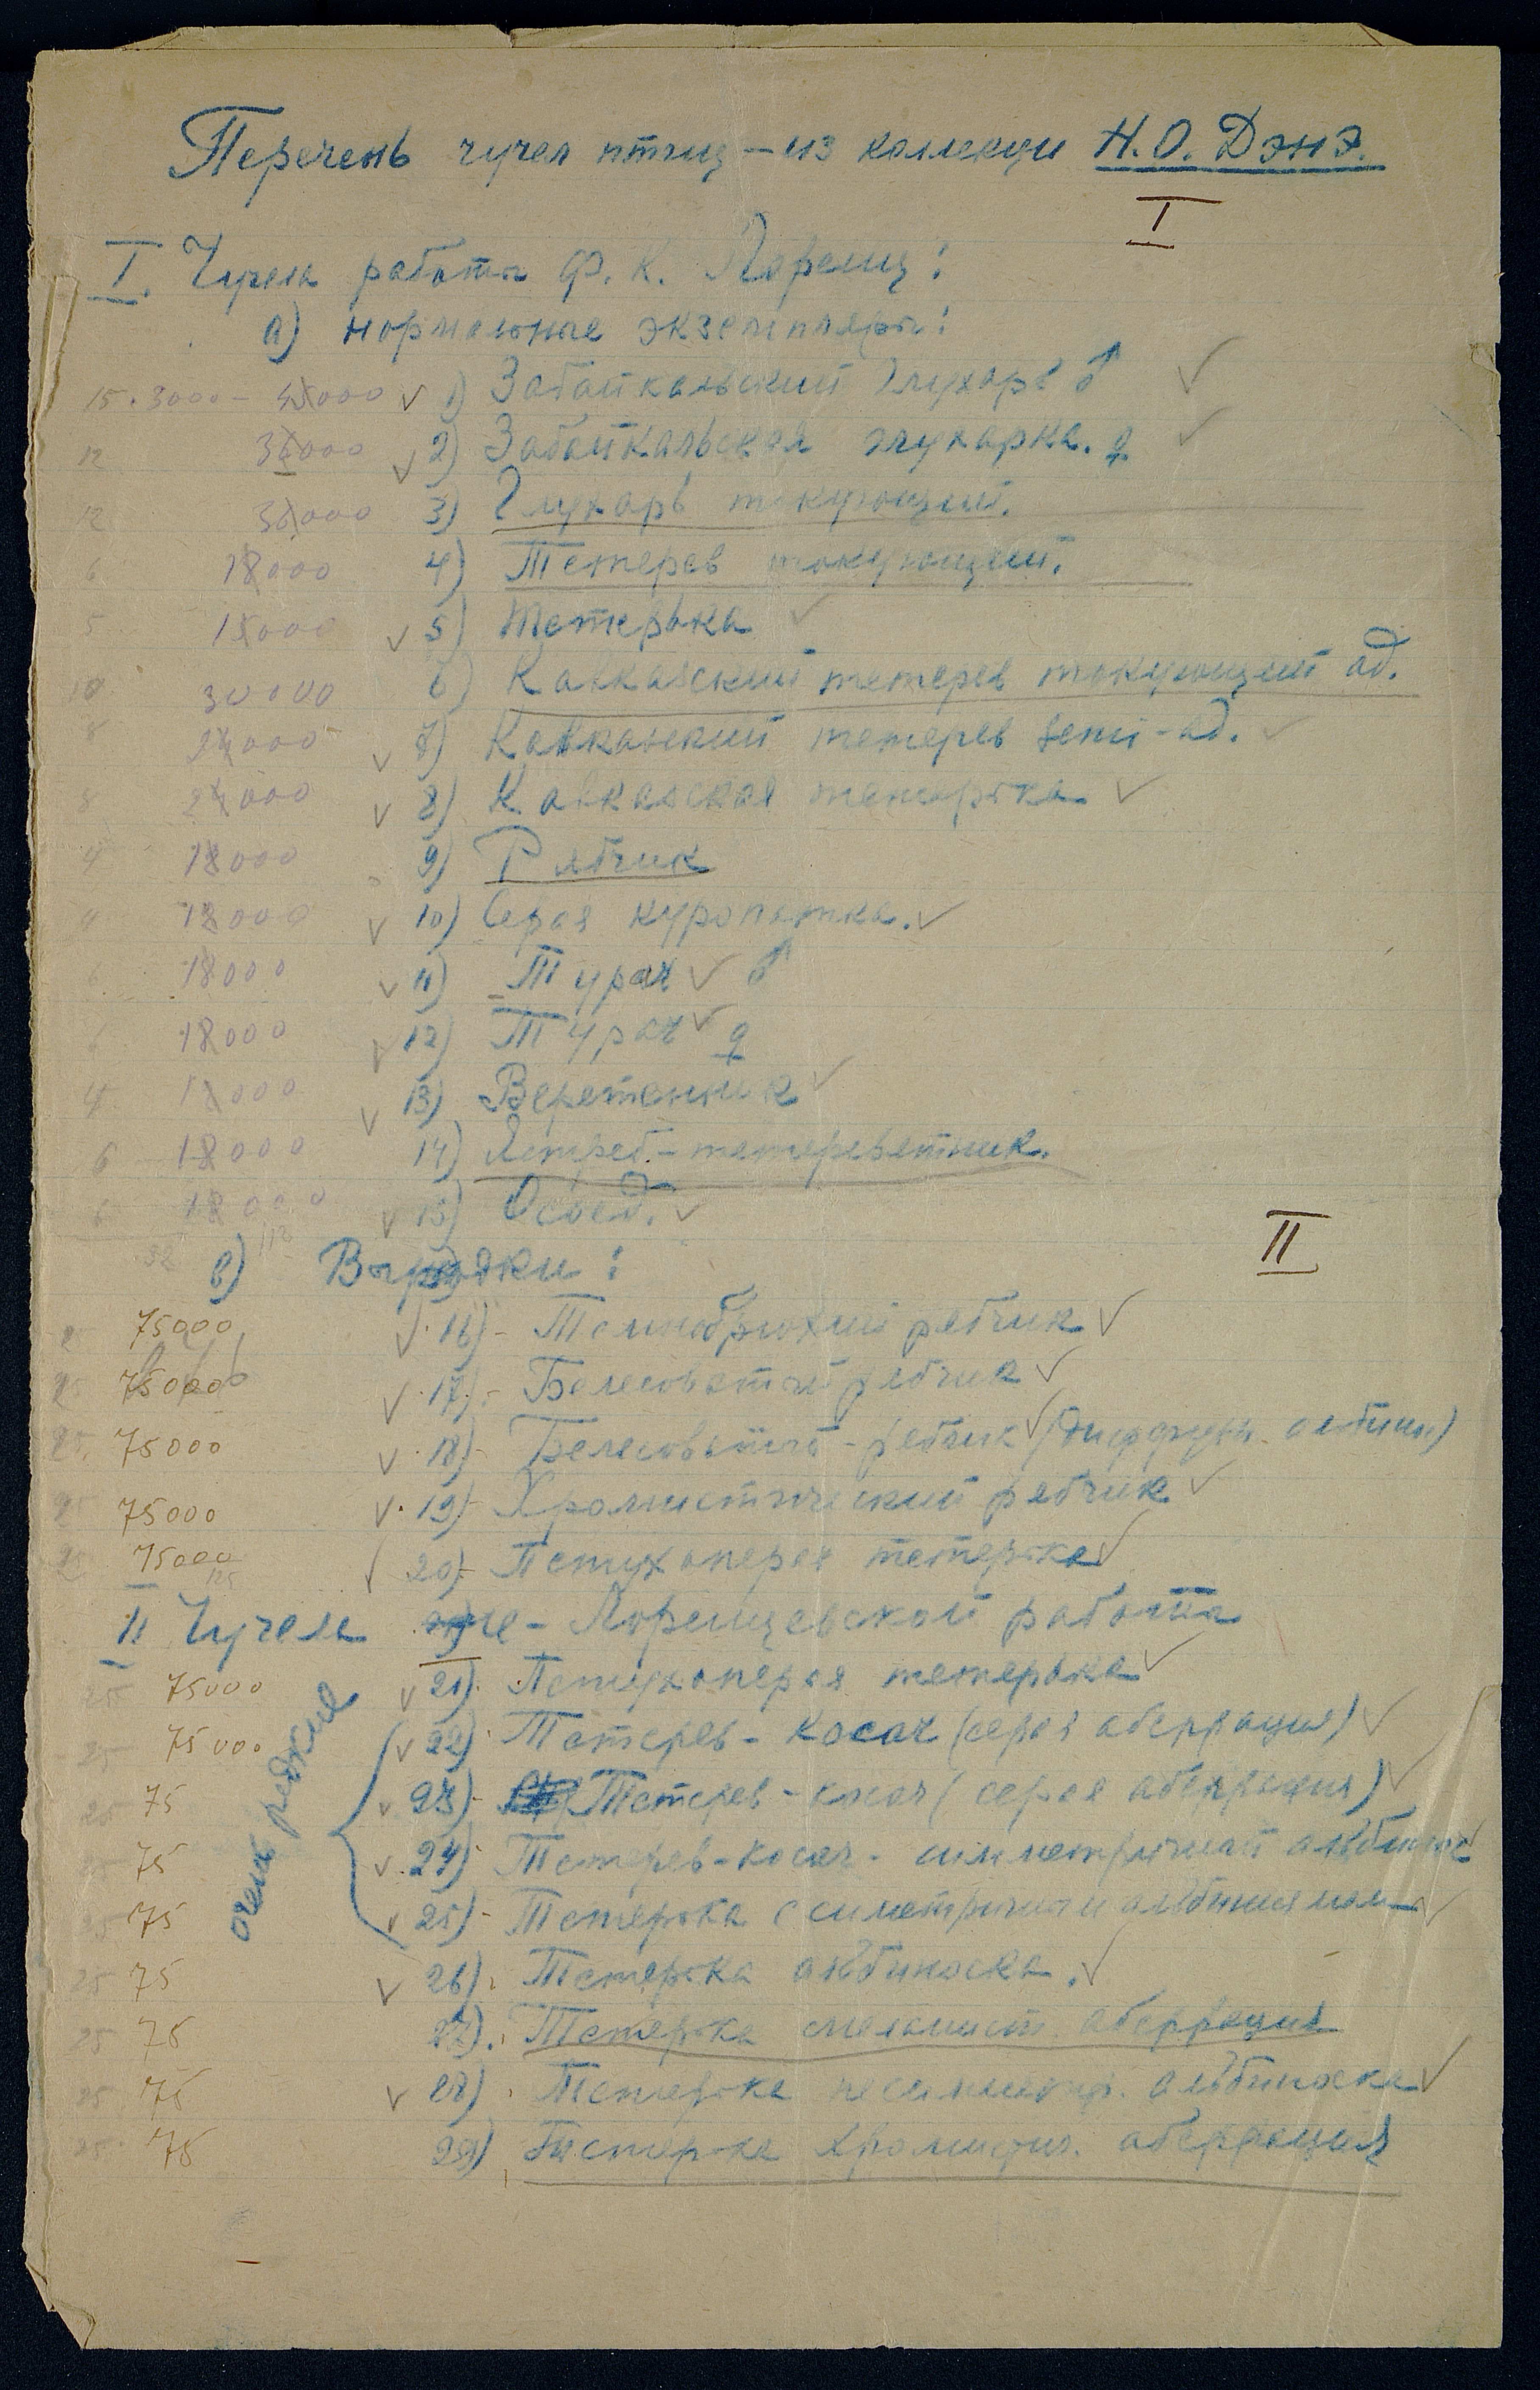 Перечень чучел птиц – из коллекции Н.О. Дэнэ.
I
I. Чучела работы Ф. К. Лоренц:
а) нормальные экземпляры:
15 . 3000 – 45000 v 1) Забайкальский глухарь ♂ ✓
12 36000 v 2) Забайкальская глухарка. ♀ ✓
12 36000 3) Глухарь токующий.
6 18000 4) Тетерев токующий.
5 15000 v 5) Тетерька ✓
10 30000 6) Кавказский тетерев токующий ad.
8 24000 v 7) Кавказский тетерев semi-ad. ✓
8 24000 v 8) Кавказская тетерька ✓
4 12000 9) Рябчик
4 12000 v 10) Серая куропатка. ✓
6 18000 v 11) Турач ✓ ♂
18000 v 12) Турач ✓ ♀
4 12000 v 13) Веретенник ✓
6 18000 14) Ястреб-тетеревятник.
6 18000 v 15) Осоед. ✓
112
II
в) Выродки:
75000 v 16) – Темнобрюхий рябчик ✓
25 75000 v 17) – Белесоватый рябчик ✓
25 75000 v 18) – Белесоватый – рябчик ✓ (диффузн. альбин.)
25 75000 v 19) – Хромистический рябчик ✓
25 75000 v 20) – Петухоперая тетерька ✓
125
II Чучела не – Лоренцевской работы
25 75000 v 21) Петухоперая тетерька ✓
25 75000 v 22) Тетерев – косач (серая аберрация) ✓
очень редкие
25 75 v 23) – Тетерев – косач (серая аберрация) ✓
25 75 v 24) Тетерев-косач – симметричный альбинос ✓
25 75 v 25) – Тетерька с симетричным альбинизмом ✓
25 75 v 26). Тетерька альбиноска. ✓
25 75 27). Тетерька меланист. аберрация
25 75 v 28) Тетерька несимметр. альбиноска ✓
25 75 29) Тетерька хромист. аберрация